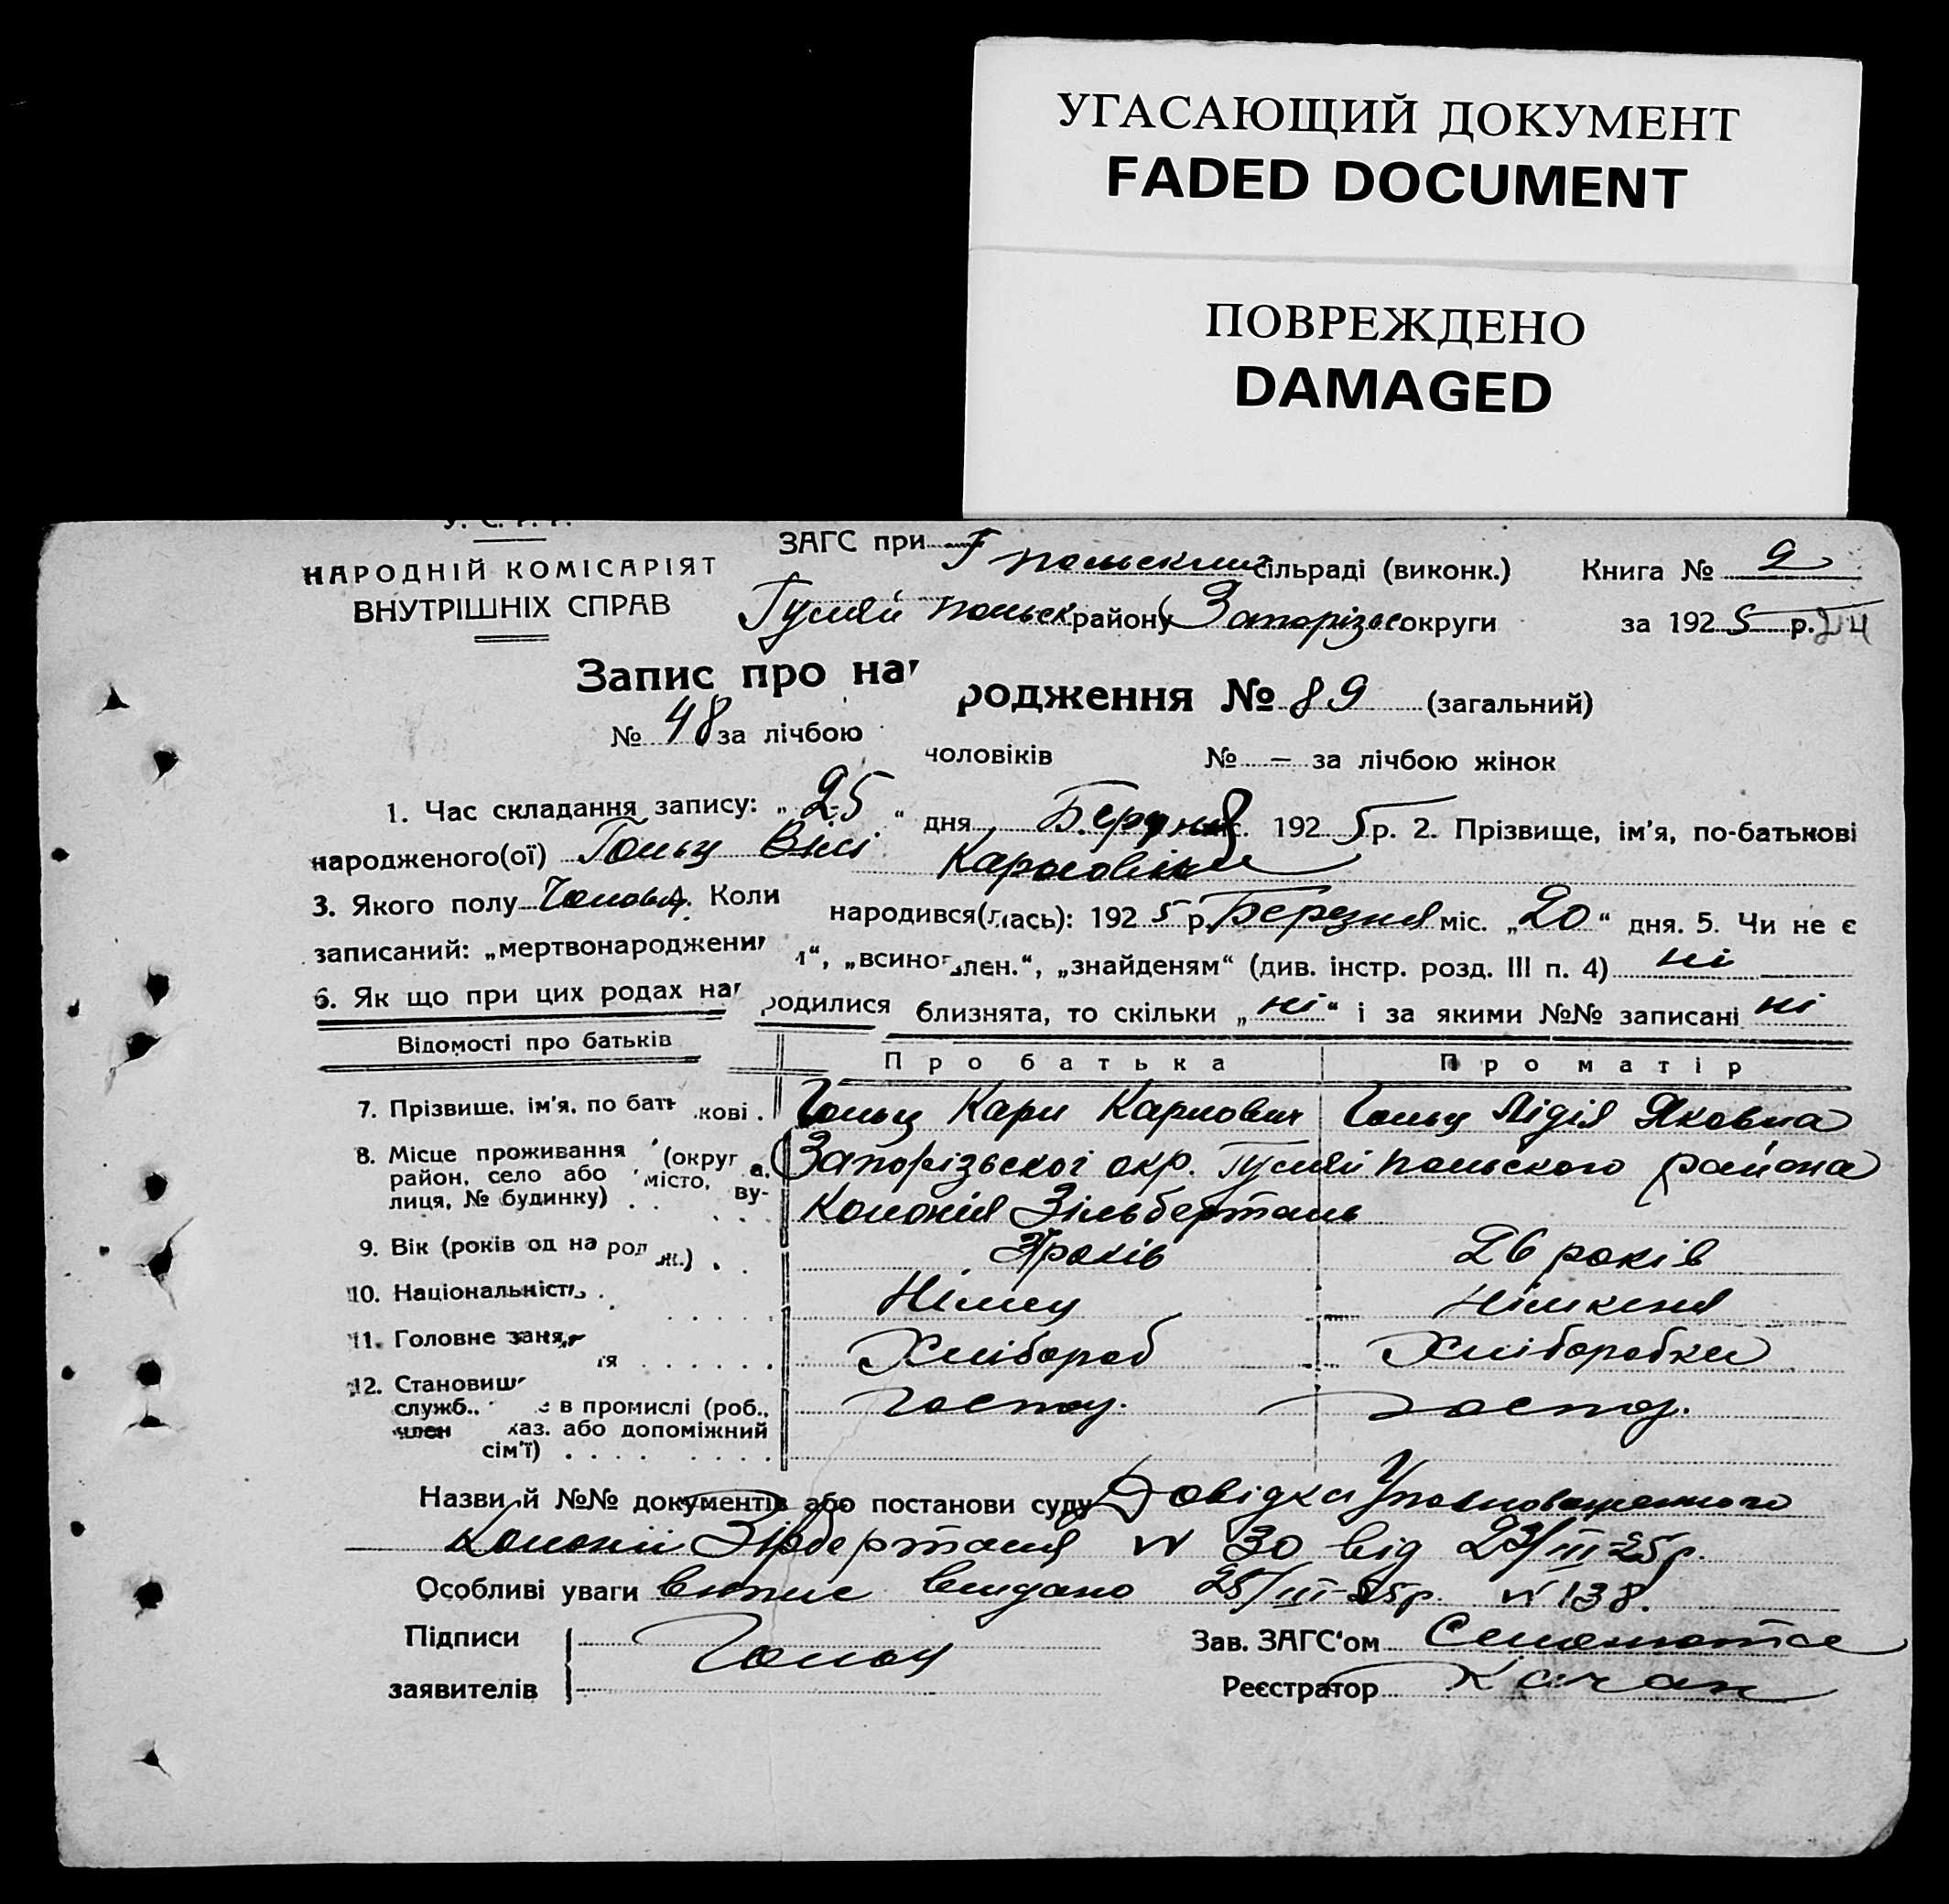 УГАСАЮЩИЙ ДОКУМЕНТ
FADED DOCUMENT
ПОВРЕЖДЕНО
DAMAGED
У. С. Р. Р.
НАРОДНІЙ КОМІСАРІЯТ
ВНУТРІШНІХ СПРАВ
ЗАГС при Г польский сільраді (виконк.)
Гуляй польск району Запорізьс округи
Книга № 9
за 1925 р.
Запис про народження № 89 (загальний)
№ 48 за лічбою чоловіків № — за лічбою жінок
1. Час складання запису: „25“ дня 1925 р. 2. Прізвище, ім'я, по-батькові
народженого(ої) Гольц
3. Якого полу Коли народився(лась): 1925 р. Березня міс. „20“ дня. 5. Чи не є
записаний: „мертвонародженим“, „всиновлен.“, „знайденям“ (див. інстр. розд. III п. 4) ні
6. Як що при цих родах народилися близнята, то скільки „ні“ і за якими №№ записані ні
Відомості про батьків Про батька Про матір
7. Прізвище, ім'я, по батькові . Гольц Карл Карлович Гольц Лідія Яковна
8. Місце проживання (округа, район, село або місто, вулиця, № будинку) . . Запорізьскоі окр. Гуляй польского района
Колонія Зільберталь
9. Вік (років од народж.) . . років 26 років
10. Національність . Німец Німкеня
11. Головне заняття . . . . . . Хлібороб Хлиборобка
12. Становище в промислі (роб., служб., хаз. або допоміжний
член сім'ї) . . . . . . . .
Назви й №№ документів або постанови суду Довідка Уповноваженного
Колонии Зільберталя № 30 від 23/III-25 р.
Особливі уваги видано 25/III-25р. № 138.
Підписи
заявителів
Гольц
Зав. ЗАГС'ом
Реєстратор Качан